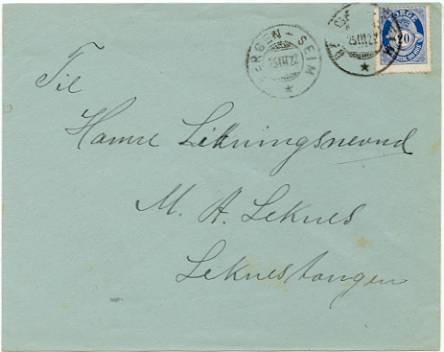 BERGEN - SEIM
25 III 22
20
Til
Hamre Likningsnevnd
M. A. Leknes
Leknestangen